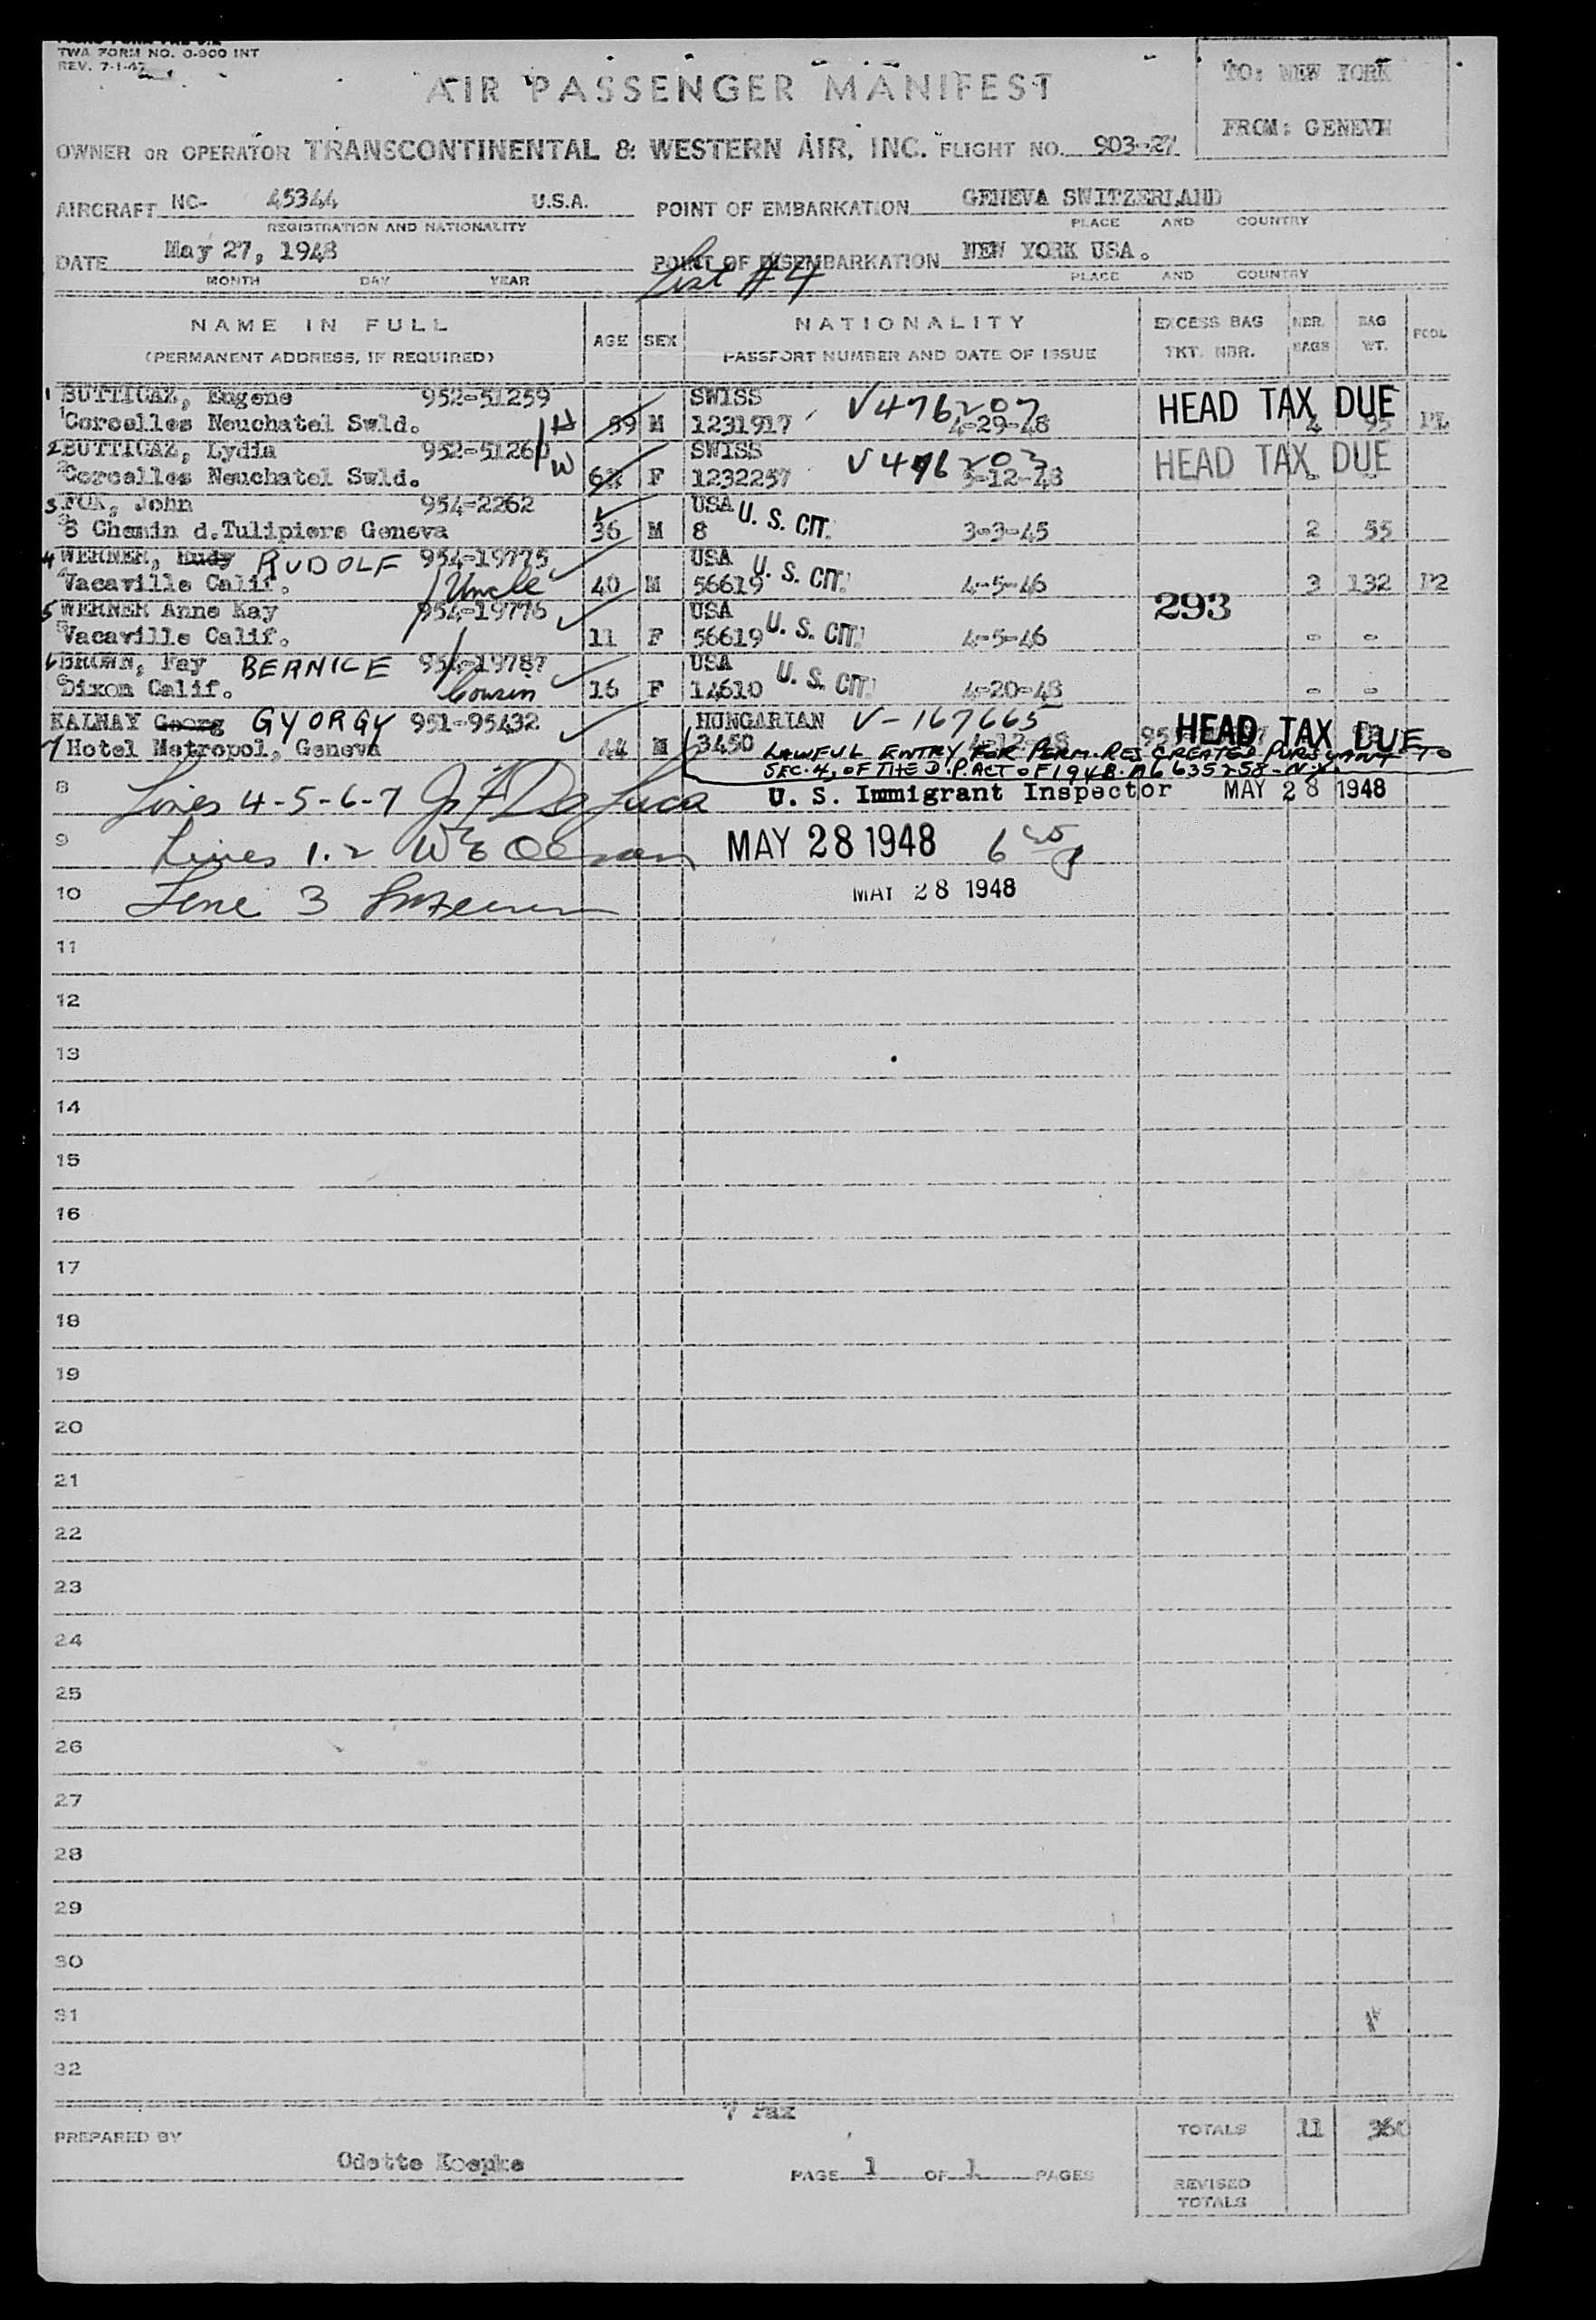 TWA FORM NO. 0-900 INT
REV. 7-1-47
AIR PASSENGER MANIFEST
TO: NEW YORK
FROM: GENEVE
OWNER OR OPERATOR TRANSCONTINENTAL & WESTERN AIR, INC. FLIGHT NO. 903-27
AIRCRAFT NC- 45344 U.S.A. POINT OF EMBARKATION GENEVA SWITZERLAND
REGISTRATION AND NATIONALITY PLACE AND COUNTRY
DATE May 27, 1948 POINT OF DISEMBARKATION NEW YORK USA.
MONTH DAY YEAR PLACE AND COUNTRY
List #4
NAME IN FULL AGE SEX NATIONALITY EXCESS BAG NBR. BAG POOL
(PERMANENT ADDRESS, IF REQUIRED) PASSPORT NUMBER AND DATE OF ISSUE TKT. NBR. BAGS WT.
1 BUTTICAZ, Eugene 952-51259 SWISS V476207 HEAD TAX DUE
1 Corcelles Neuchatel Swld. H 59 M 1231917 4-29-48 4 95
2 BUTTICAZ, Lydia 952-51260 SWISS V476203 HEAD TAX DUE
2 Corcelles Neuchatel Swld. W F 1232257 3-12-48 - -
3 FOX, John 954-2262 USA U. S. CIT.
3 8 Chemin d.Tulipiers Geneva 36 M 8 3-3-45 2 55
4 WERNER, Rudy RUDOLF 954-19775 USA U. S. CIT.
4 Vacaville Calif. Uncle 40 M 56619 4-5-46 3 132 P2
5 WERNER Anne Kay 954-19776 USA U. S. CIT. 293
5 Vacaville Calif. 11 F 56619 4-5-46 - -
6 BROWN, Fay BERNICE 954-19787 USA U. S. CIT.
6 Dixon Calif. Cousin 16 F 14610 4-20-48 - -
KALNAY Georg GYORGY 951-95432 HUNGARIAN V-167665 HEAD TAX DUE
7 Hotel Metropol, Geneva 44 M 3450 4-12-48
LAWFUL ENTRY FOR PERM. RES. CREATED PURSUANT TO
SEC. 4, OF THE D.P. ACT OF 1948. A6635258-N.Y.
8 Lines 4-5-6-7 U. S. Immigrant Inspector MAY 28 1948
9 Lines 1.2 MAY 28 1948
10 Line 3 MAY 28 1948
11
12
13
14
15
16
17
18
19
20
21
22
23
24
25
26
27
28
29
30
31
32
7 Pax
PREPARED BY TOTALS 11 360
Odette Koepke
PAGE 1 OF 1 PAGES
REVISED
TOTALS